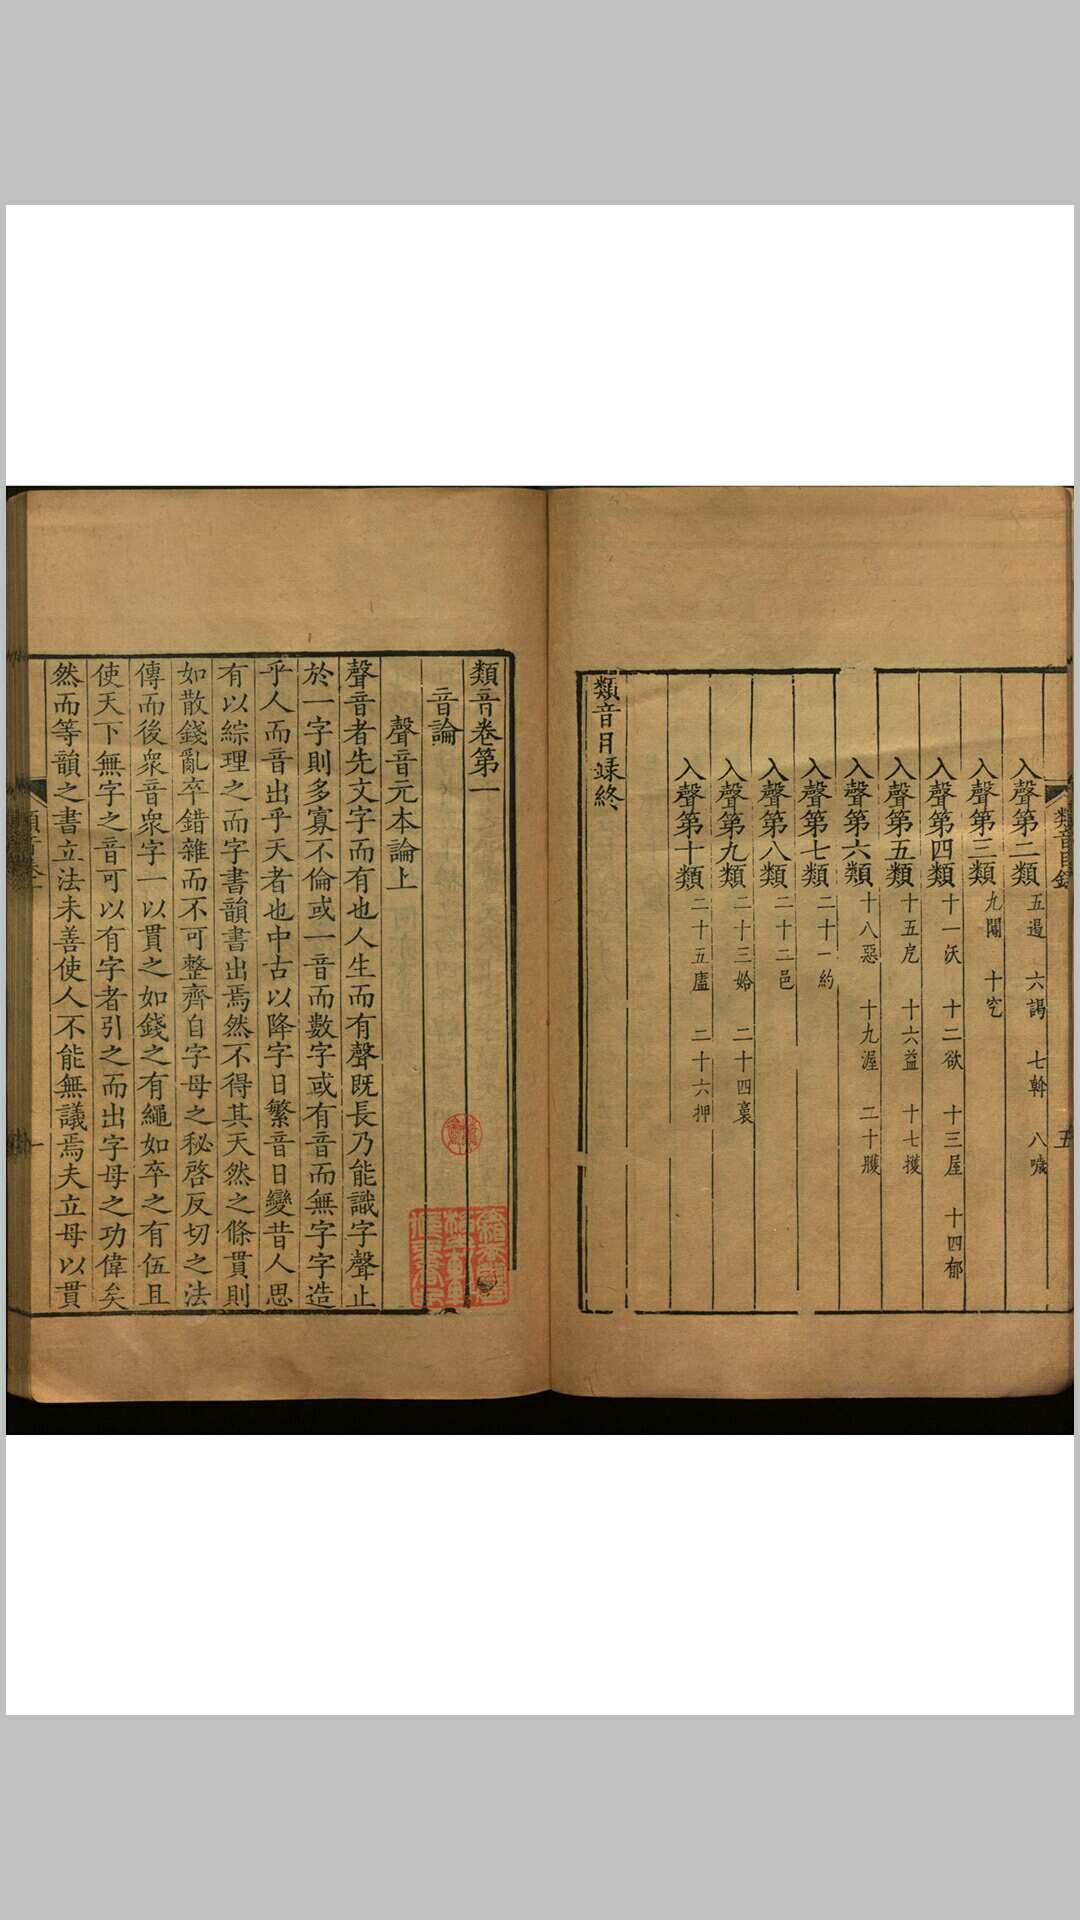 類音目錄
五
入聲第二類 五遏 六謁 七斡 八噦
入聲第三類 九闒 十穵
入聲第四類 十一沃 十二欲 十三屋 十四郁
入聲第五類 十五戹 十六益 十七擭
入聲第六類 十八惡 十九渥 二十臒
入聲第七類 二十一約
入聲第八類 二十二邑
入聲第九類 二十三姶 二十四裛
入聲第十類 二十五㕎 二十六押
類音目錄終
類音卷第一
音論
聲音元本論上
聲音者先文字而有也人生而有聲既長乃能識字聲止
於一字則多寡不倫或一音而數字或有音而無字字造
乎人而音出乎天者也中古以降字日繁音日變昔人思
有以綜理之而字書韻書出焉然不得其天然之條貫則
如散錢亂卒錯雜而不可整齊自字母之秘啓反切之法
傳而後衆音衆字一以貫之如錢之有繩如卒之有伍且
使天下無字之音可以有字者引之而出字母之功偉矣
然而等韻之書立法未善使人不能無議焉夫立母以貫